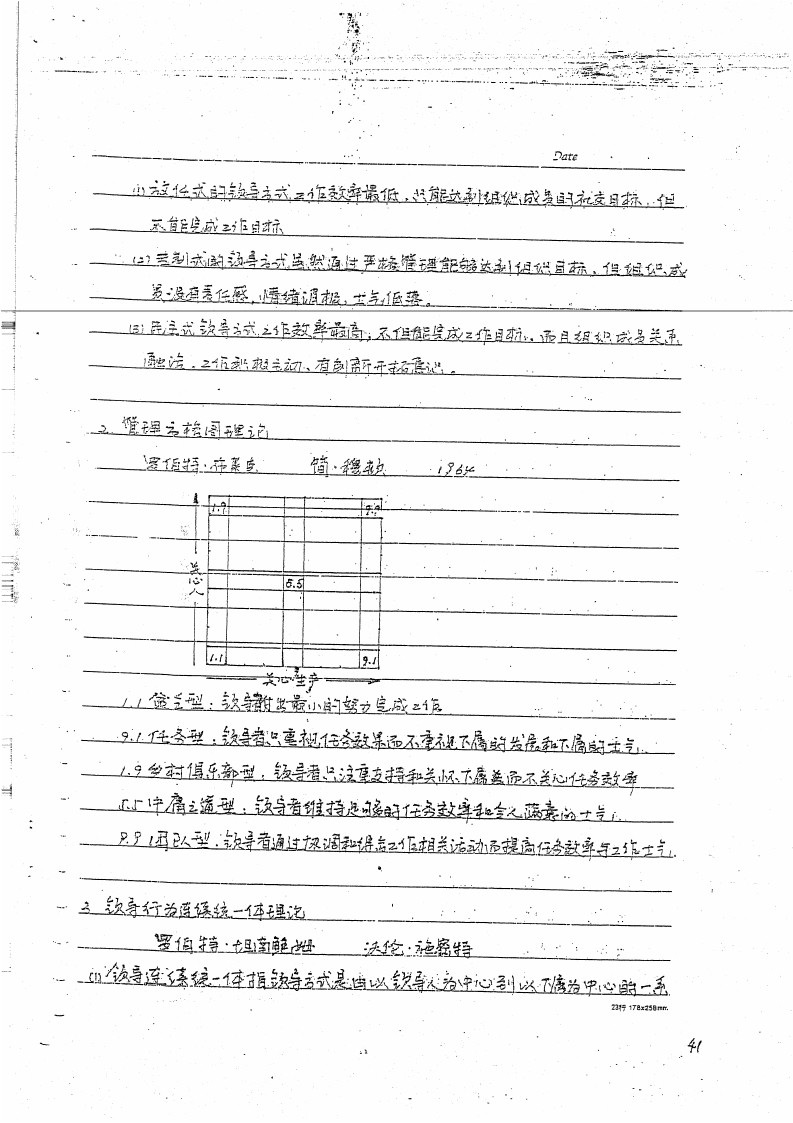 Date
(1) 放任式的领导方式工作效率最低，只能达到组织成员的社交目标，但
不能完成工作目标
(2) 专制式的领导方式虽然通过严格管理能够达到组织目标，但组织成
员没有责任感，情绪消极，士气低落。
(3) 民主式领导方式工作效率最高，不但能完成工作目标，而且组织成员关系
融洽，工作积极主动，有创新开拓意识。
2. 管理方格图理论
罗伯特·布莱克 简·穆顿 1964
1.9 9.9
关心人
5.5
1.1 9.1
关心生产
1.1 贫乏型：领导付出最小的努力完成工作
9.1 任务型：领导者只重视任务效果而不重视下属的发展和下属的士气。
1.9 乡村俱乐部型：领导者只注重支持和关怀下属而不关心任务效率
5.5 中庸之道型：领导者维持足够的任务效率和令人满意的士气。
9.9 团队型：领导者通过协调和综合工作相关活动而提高任务效率与工作士气。
3. 领导行为连续统一体理论
罗伯特·坦南鲍姆 沃伦·施密特
(1) 领导连续统一体指领导方式是由以领导人为中心到以下属为中心的一系
23行 178x258mm.
41